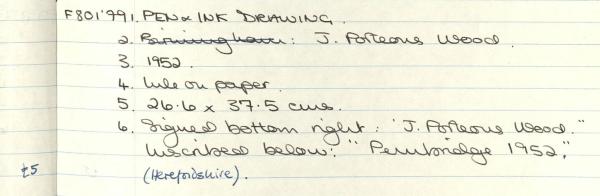 F801'991. PEN & INK DRAWING.
2. Birmingham: J. Porteous Wood.
3. 1952.
4. Ink on paper.
5. 26.6 x 37.5 cms.
6. Signed bottom right: "J. Porteous Wood."
Inscribed below: "Pembridge 1952."
£5 (Herefordshire).